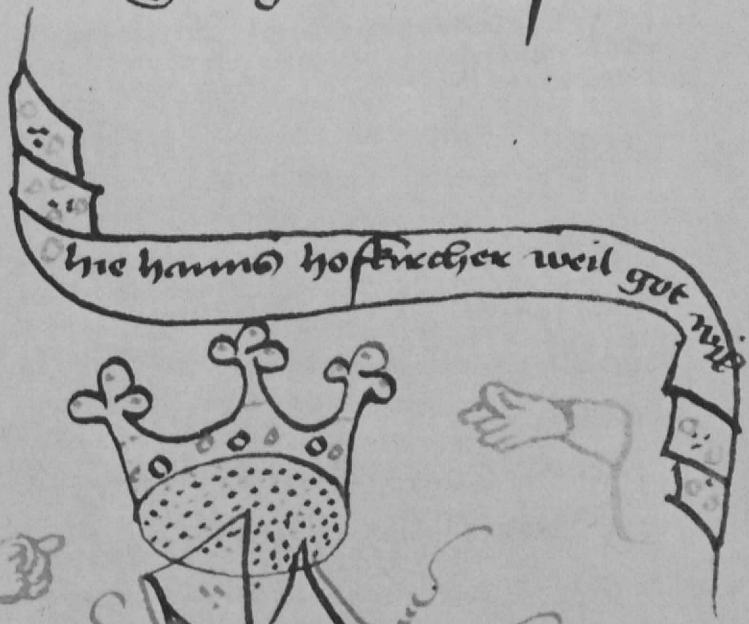 hie hanns hofkircher weil got wil